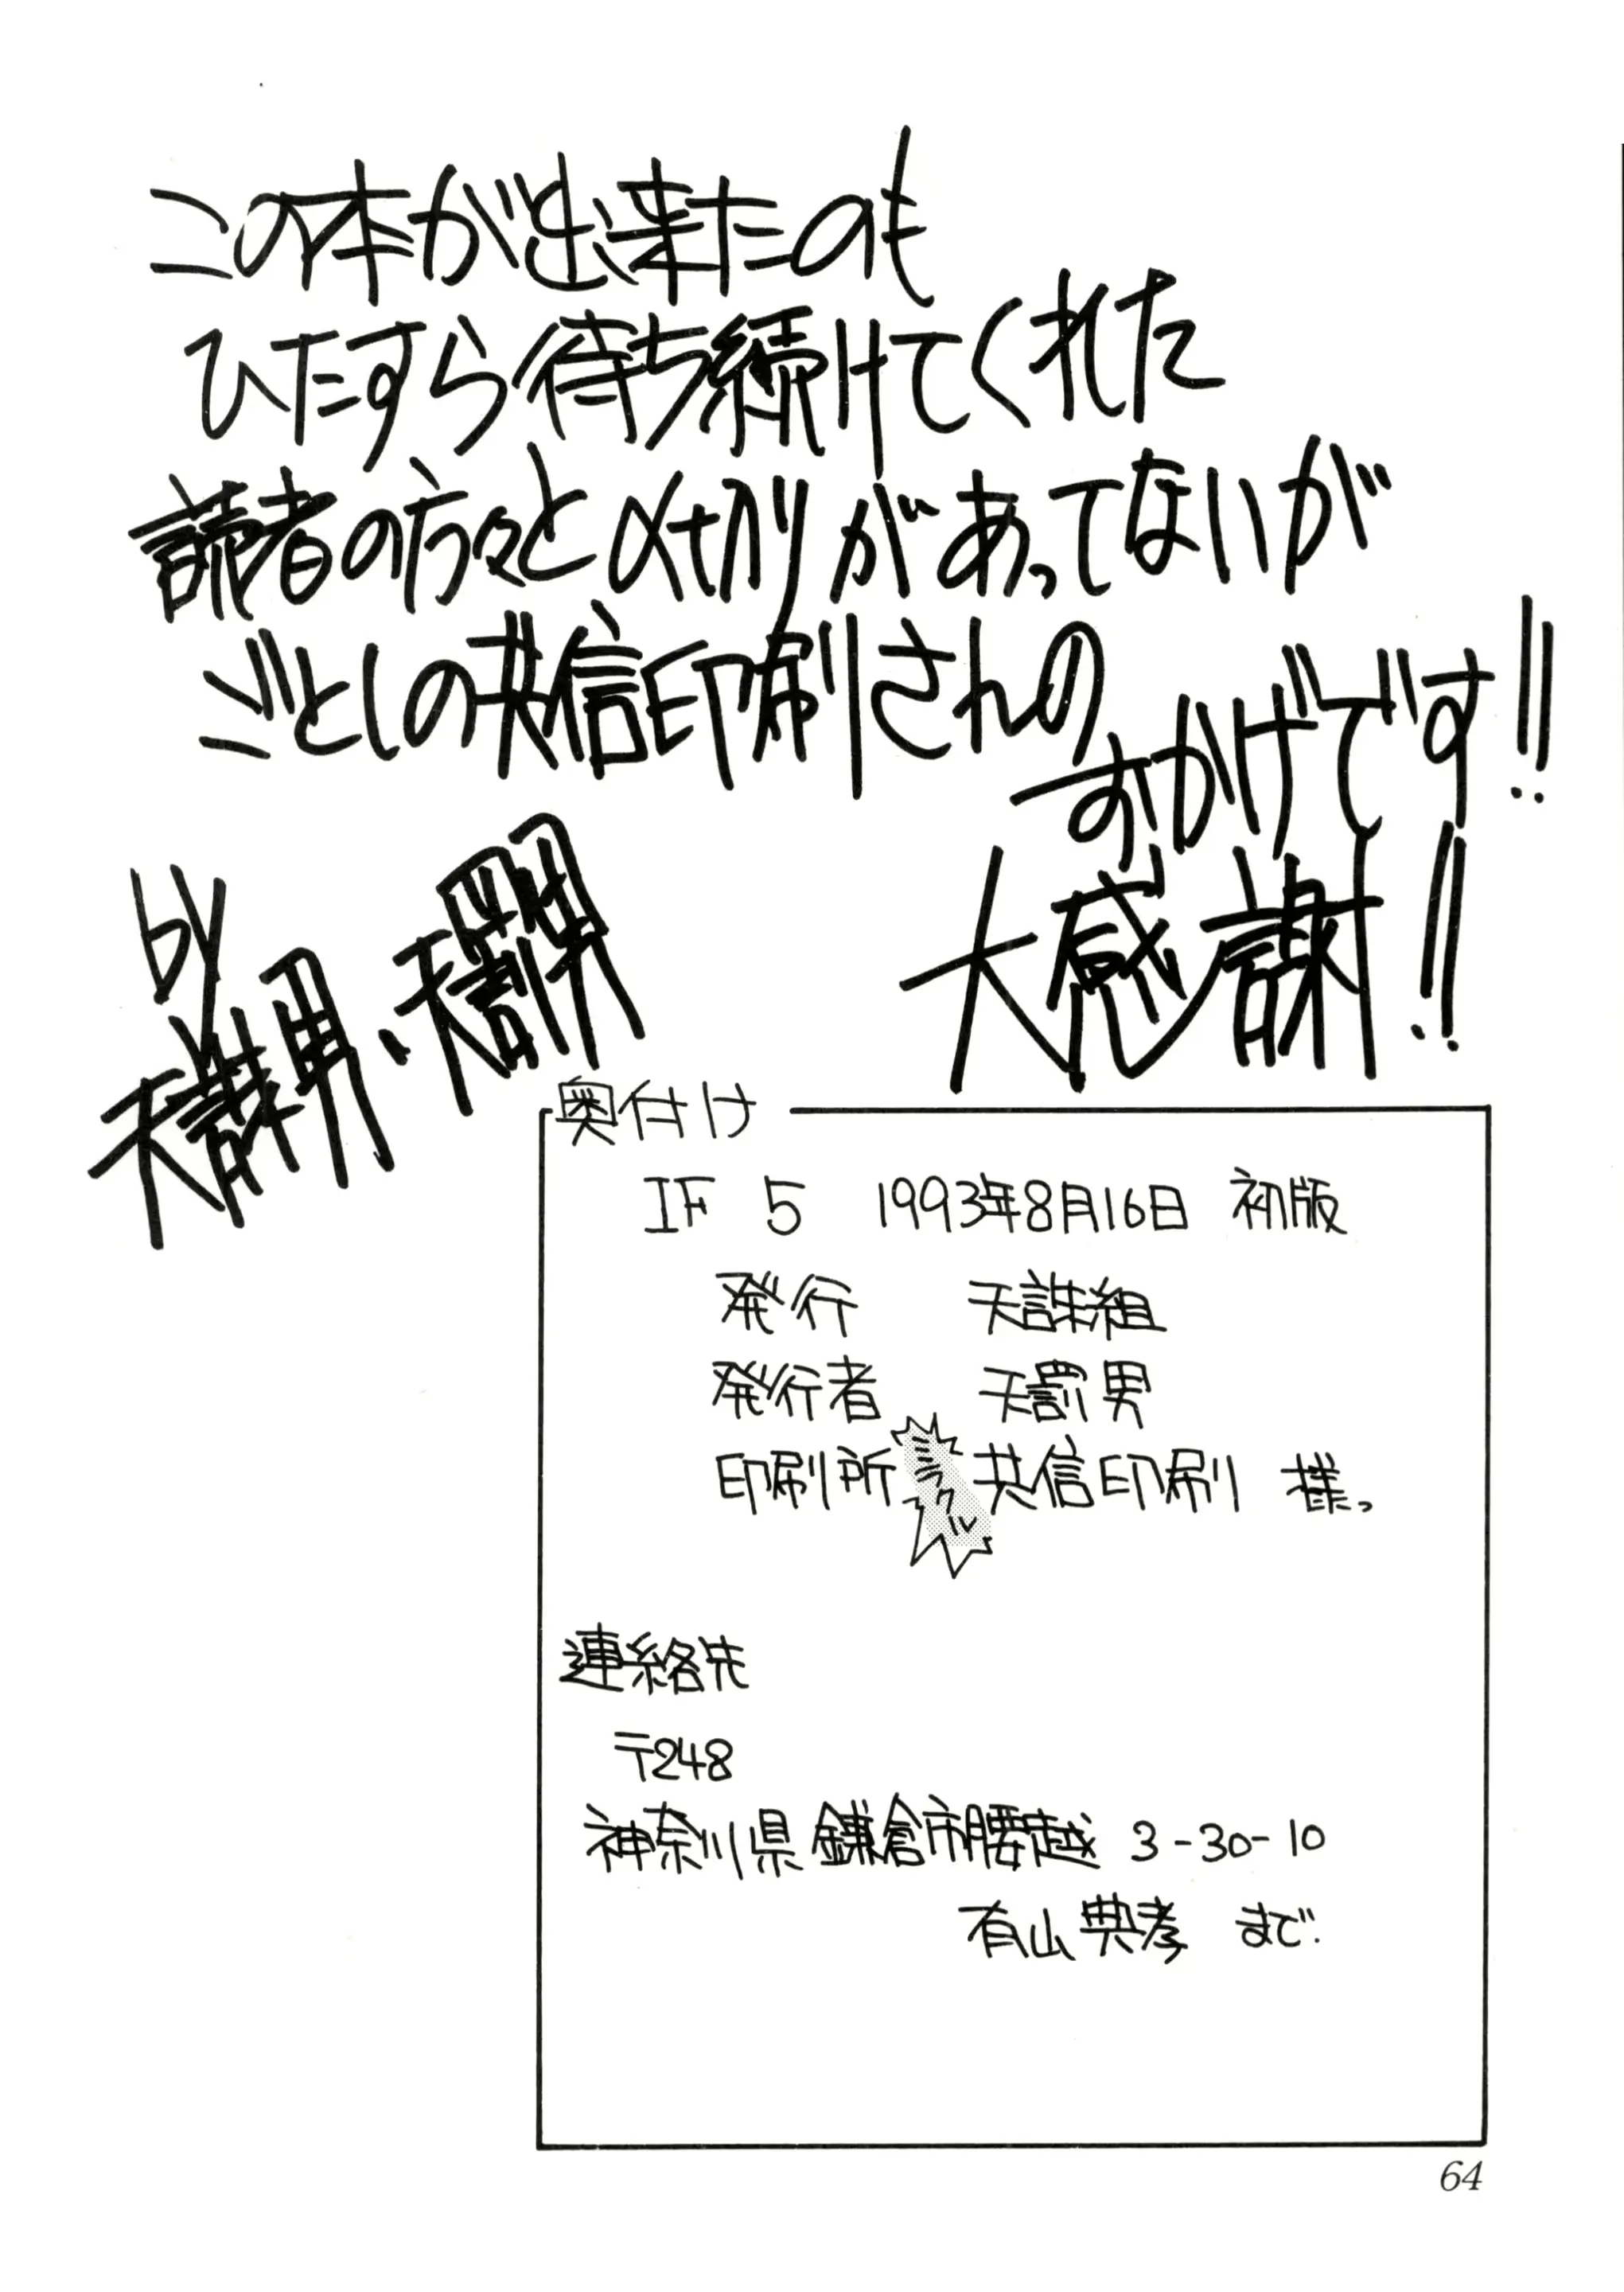 この本が出来たのも
ひたすら待ち続けてくれた
読者の方々と〆切りがあってないが
ごとしの共信印刷さんの
おかげです!!
大感謝!!
by
天誅男、天罰男
奥付け
IF 5 1993年8月16日 初版
発行 天誅組
発行者 天罰男
印刷所 ミラクル 共信印刷 様。
連絡先
〒248
神奈川県鎌倉市腰越 3-30-10
有山典孝 まで
64